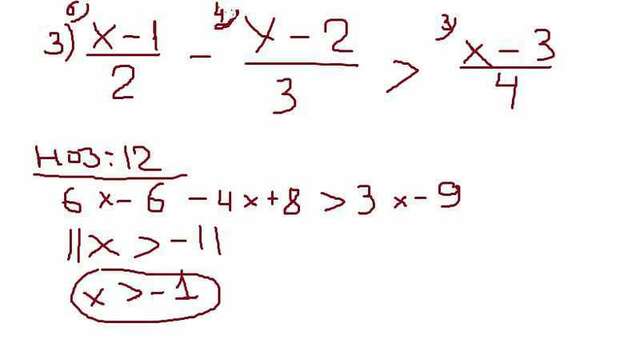 6) 4) 3)
3) x-1/2 - x-2/3 > x-3/4
НОЗ:12
6x-6-4x+8>3x-9
11x>-11
x>-1